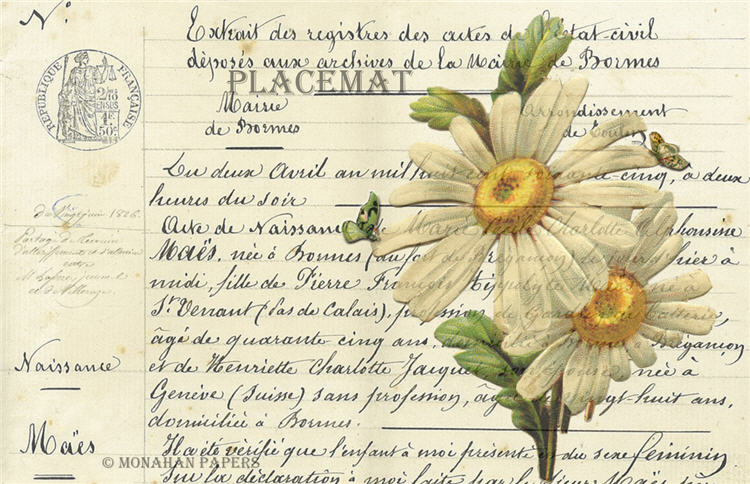 N°
Extrait des registres des actes de l'état-civil
déposés aux archives de la Mairie de Bormes
PLACEMAT
RÉPUBLIQUE FRANÇAISE
2/10
EN SUS
1F.
50c
Mairie
de Bormes
Arrondissement
de Toulon
Du deux Avril an mil huit cent soixante-cinq, à deux
heures du soir
Acte de Naissance de Marie Charlotte Alphonsine
Maës, née à Bormes (au fort de Brégançon) le jour d'hier à
midi, fille de Pierre François Hippolyte né à
St Venant (Pas de Calais), profession de Garde de Batterie,
âgé de quarante cinq ans, domicilié à Bormes à Brégançon
et de Henriette Charlotte Jacquet, son épouse, née à
Genève (Suisse) sans profession, âgée de vingt-huit ans,
domiciliée à Bormes.
Il a été vérifié que l'enfant à moi présenté est du sexe féminin
Sur la déclaration à moi faite par le sieur Maës
Naissance
Maës
© MONAHAN PAPERS